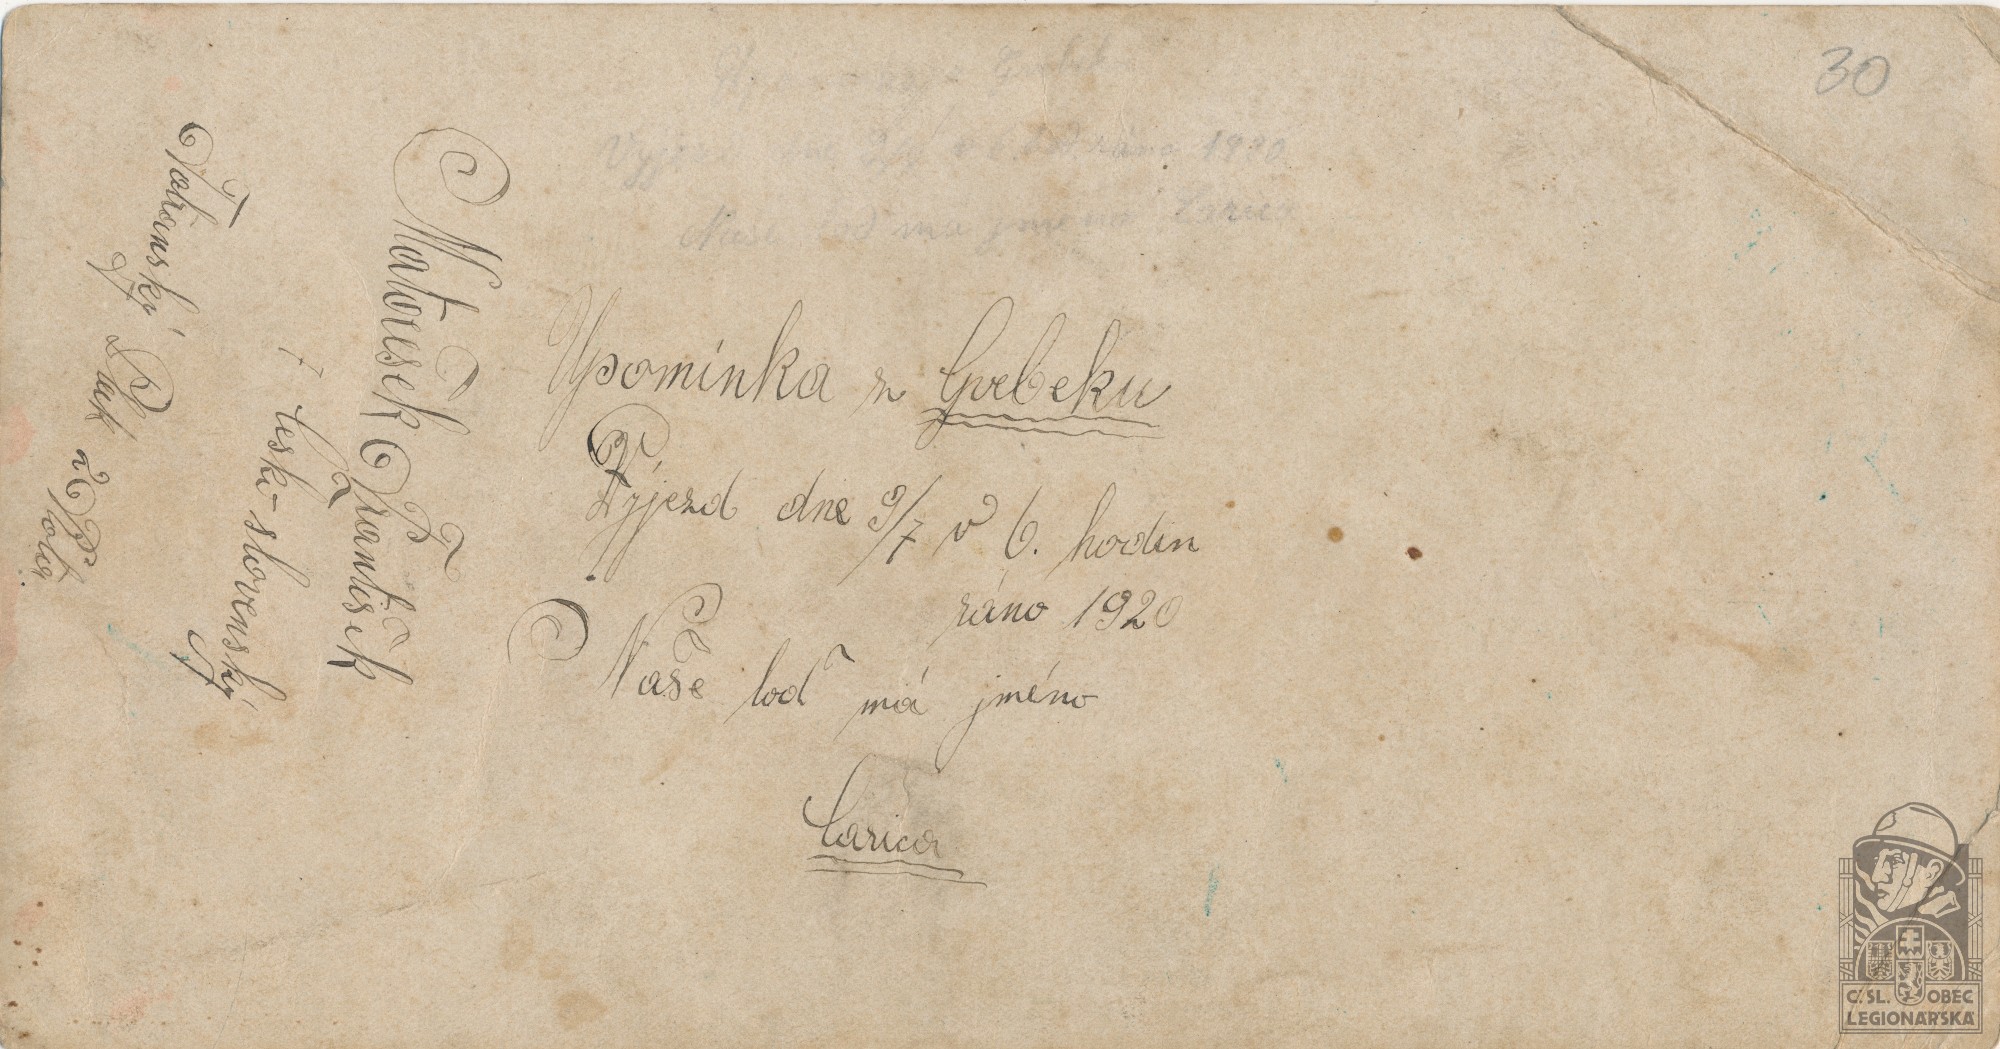 30
Výjezd dne v 6 hod. ráno 1920
Naše loď má jméno Carica
Upomínka z Gvebeku
Výjezd dne 9/7 v 6. hodin
ráno 1920
Naše loď má jméno
Carica
Matoušek František
česko-slovenský
Vojenský Pluk
C.SL. OBEC
LEGIONÁŘSKÁ